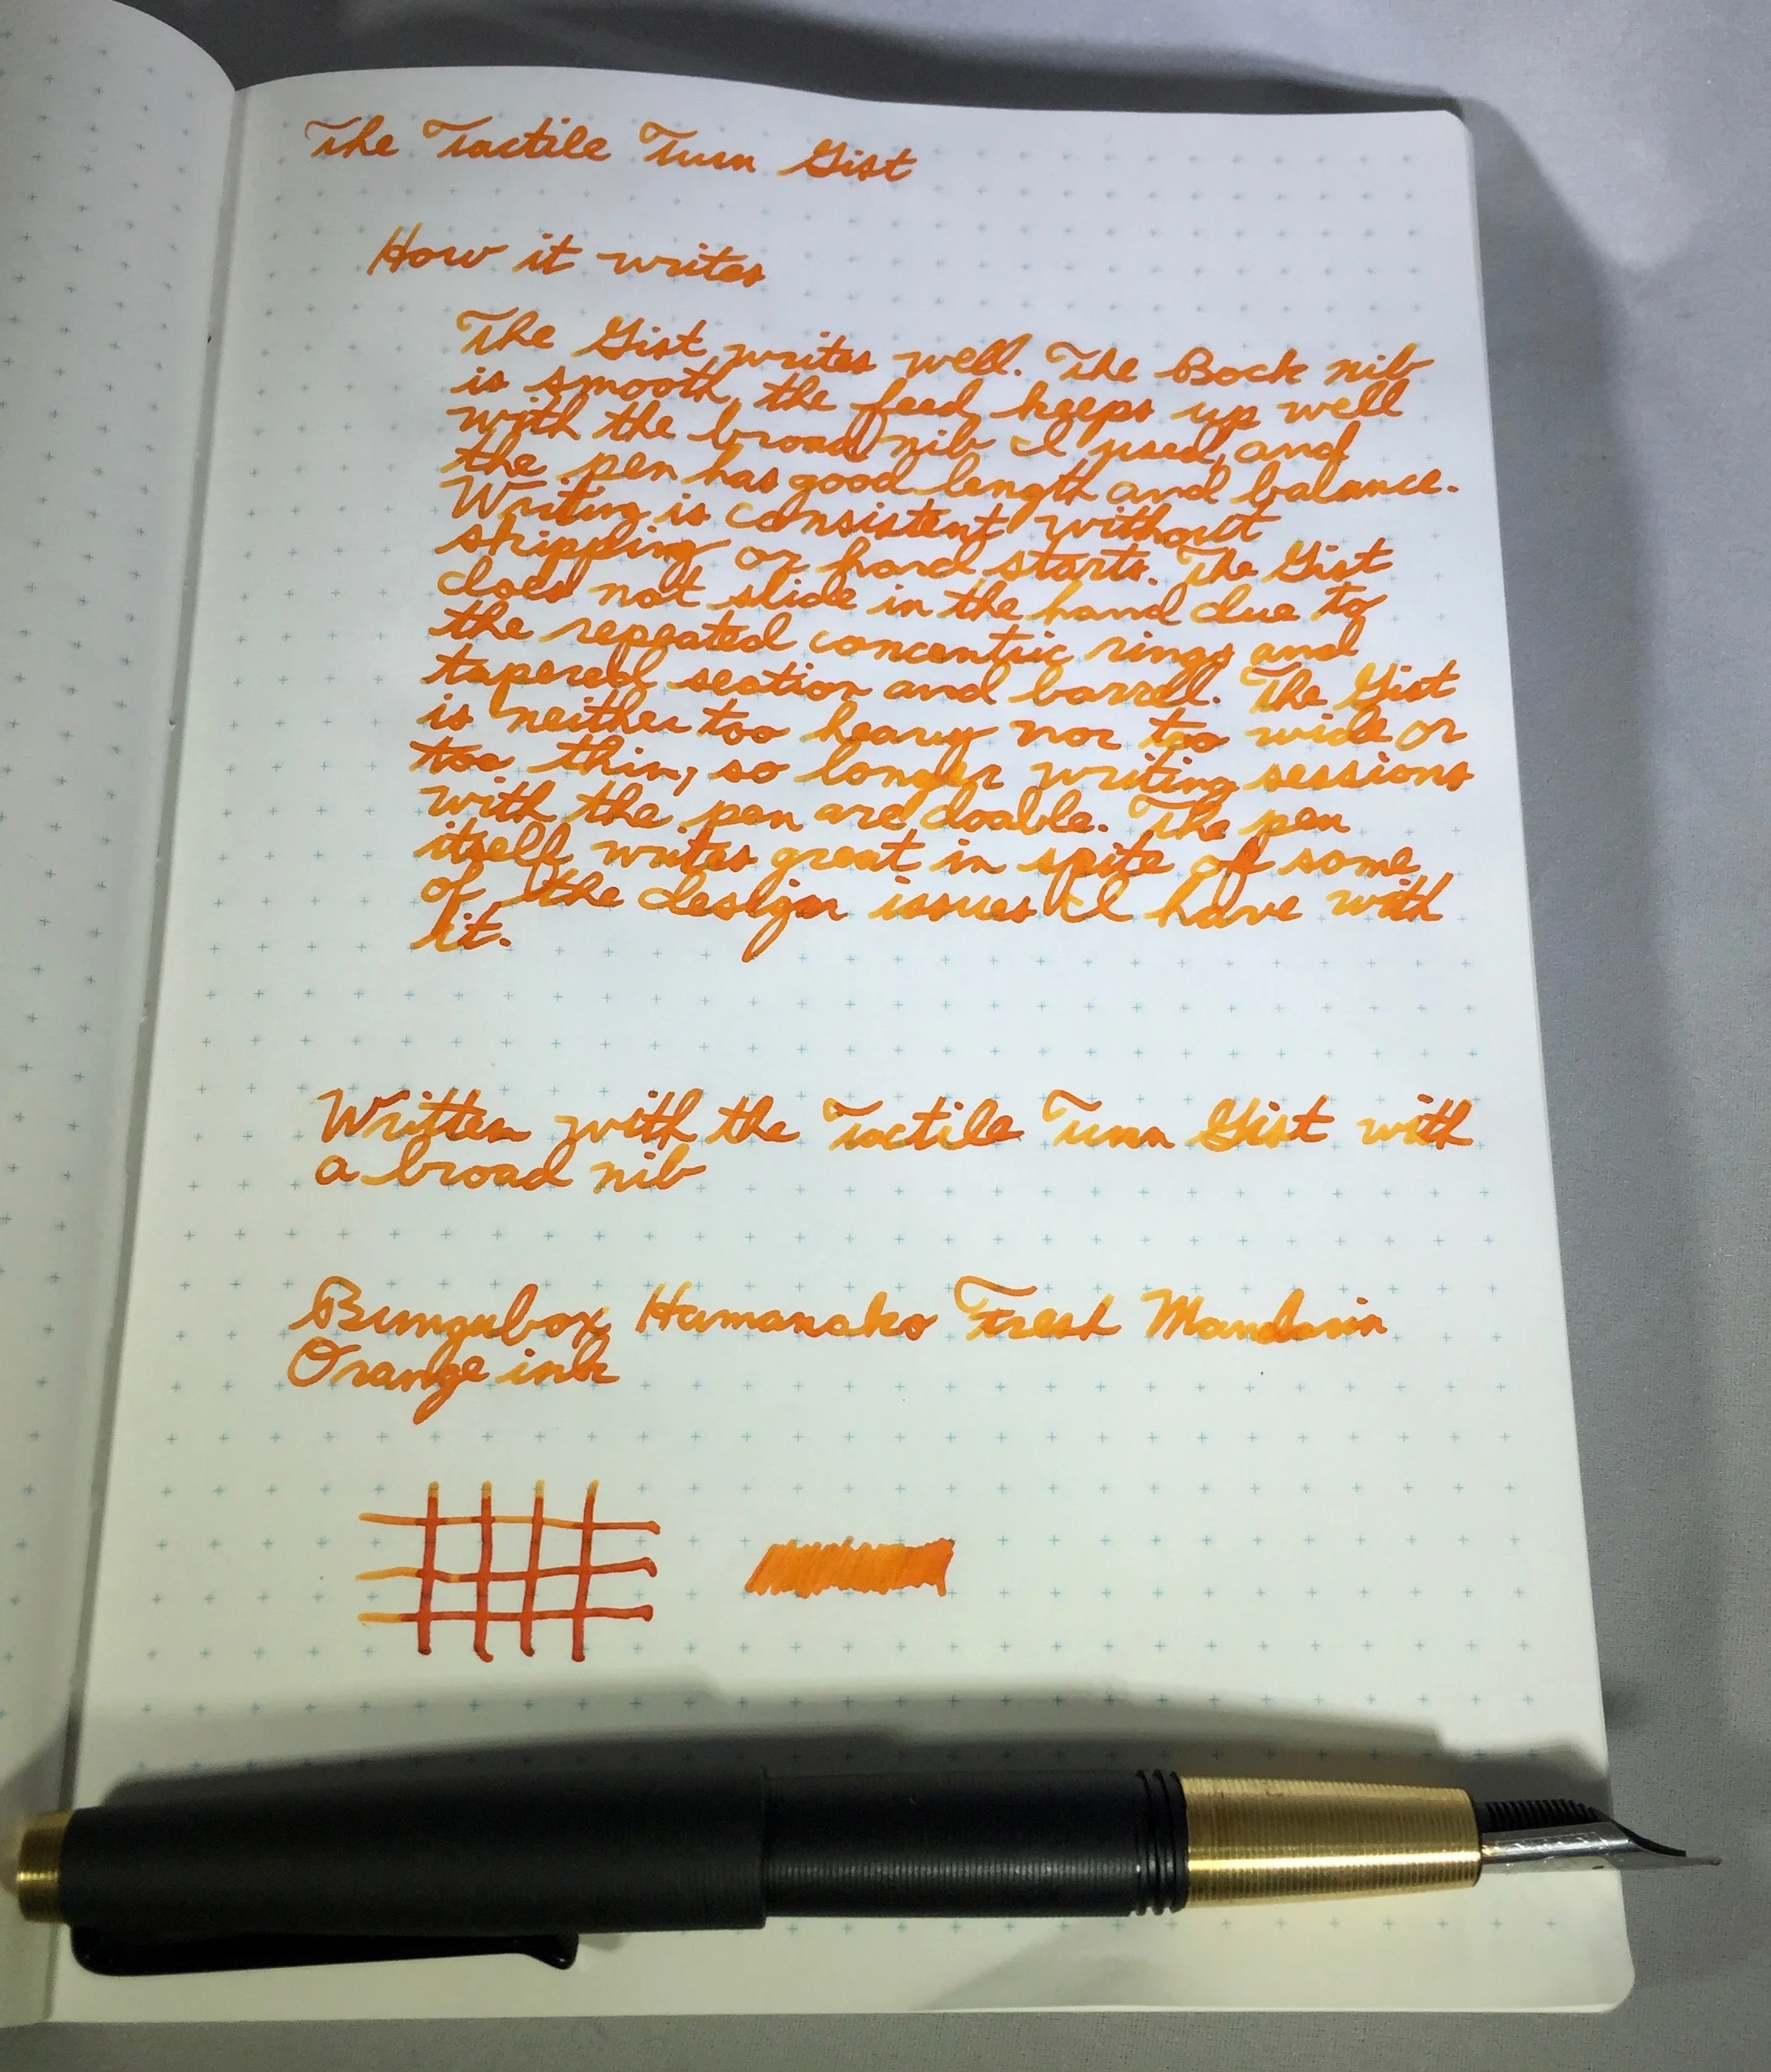 The Tactile Turn Gist
How it writes
The Gist writes well. The Bock nib
is smooth, the feed keeps up well
with the broad nib I used, and
the pen has good length and balance.
Writing is consistent without
skipping or hard starts. The Gist
does not slide in the hand due to
the repeated concentric rings and
tapered section and barrel. The Gist
is neither too heavy nor too wide or
too thin, so longer writing sessions
with the pen are doable. The pen
itself writes great in spite of some
of the design issues I have with
it.
Written with the Tactile Turn Gist with
a broad nib
Bungubox Hamanako Fresh Mandarin
Orange ink